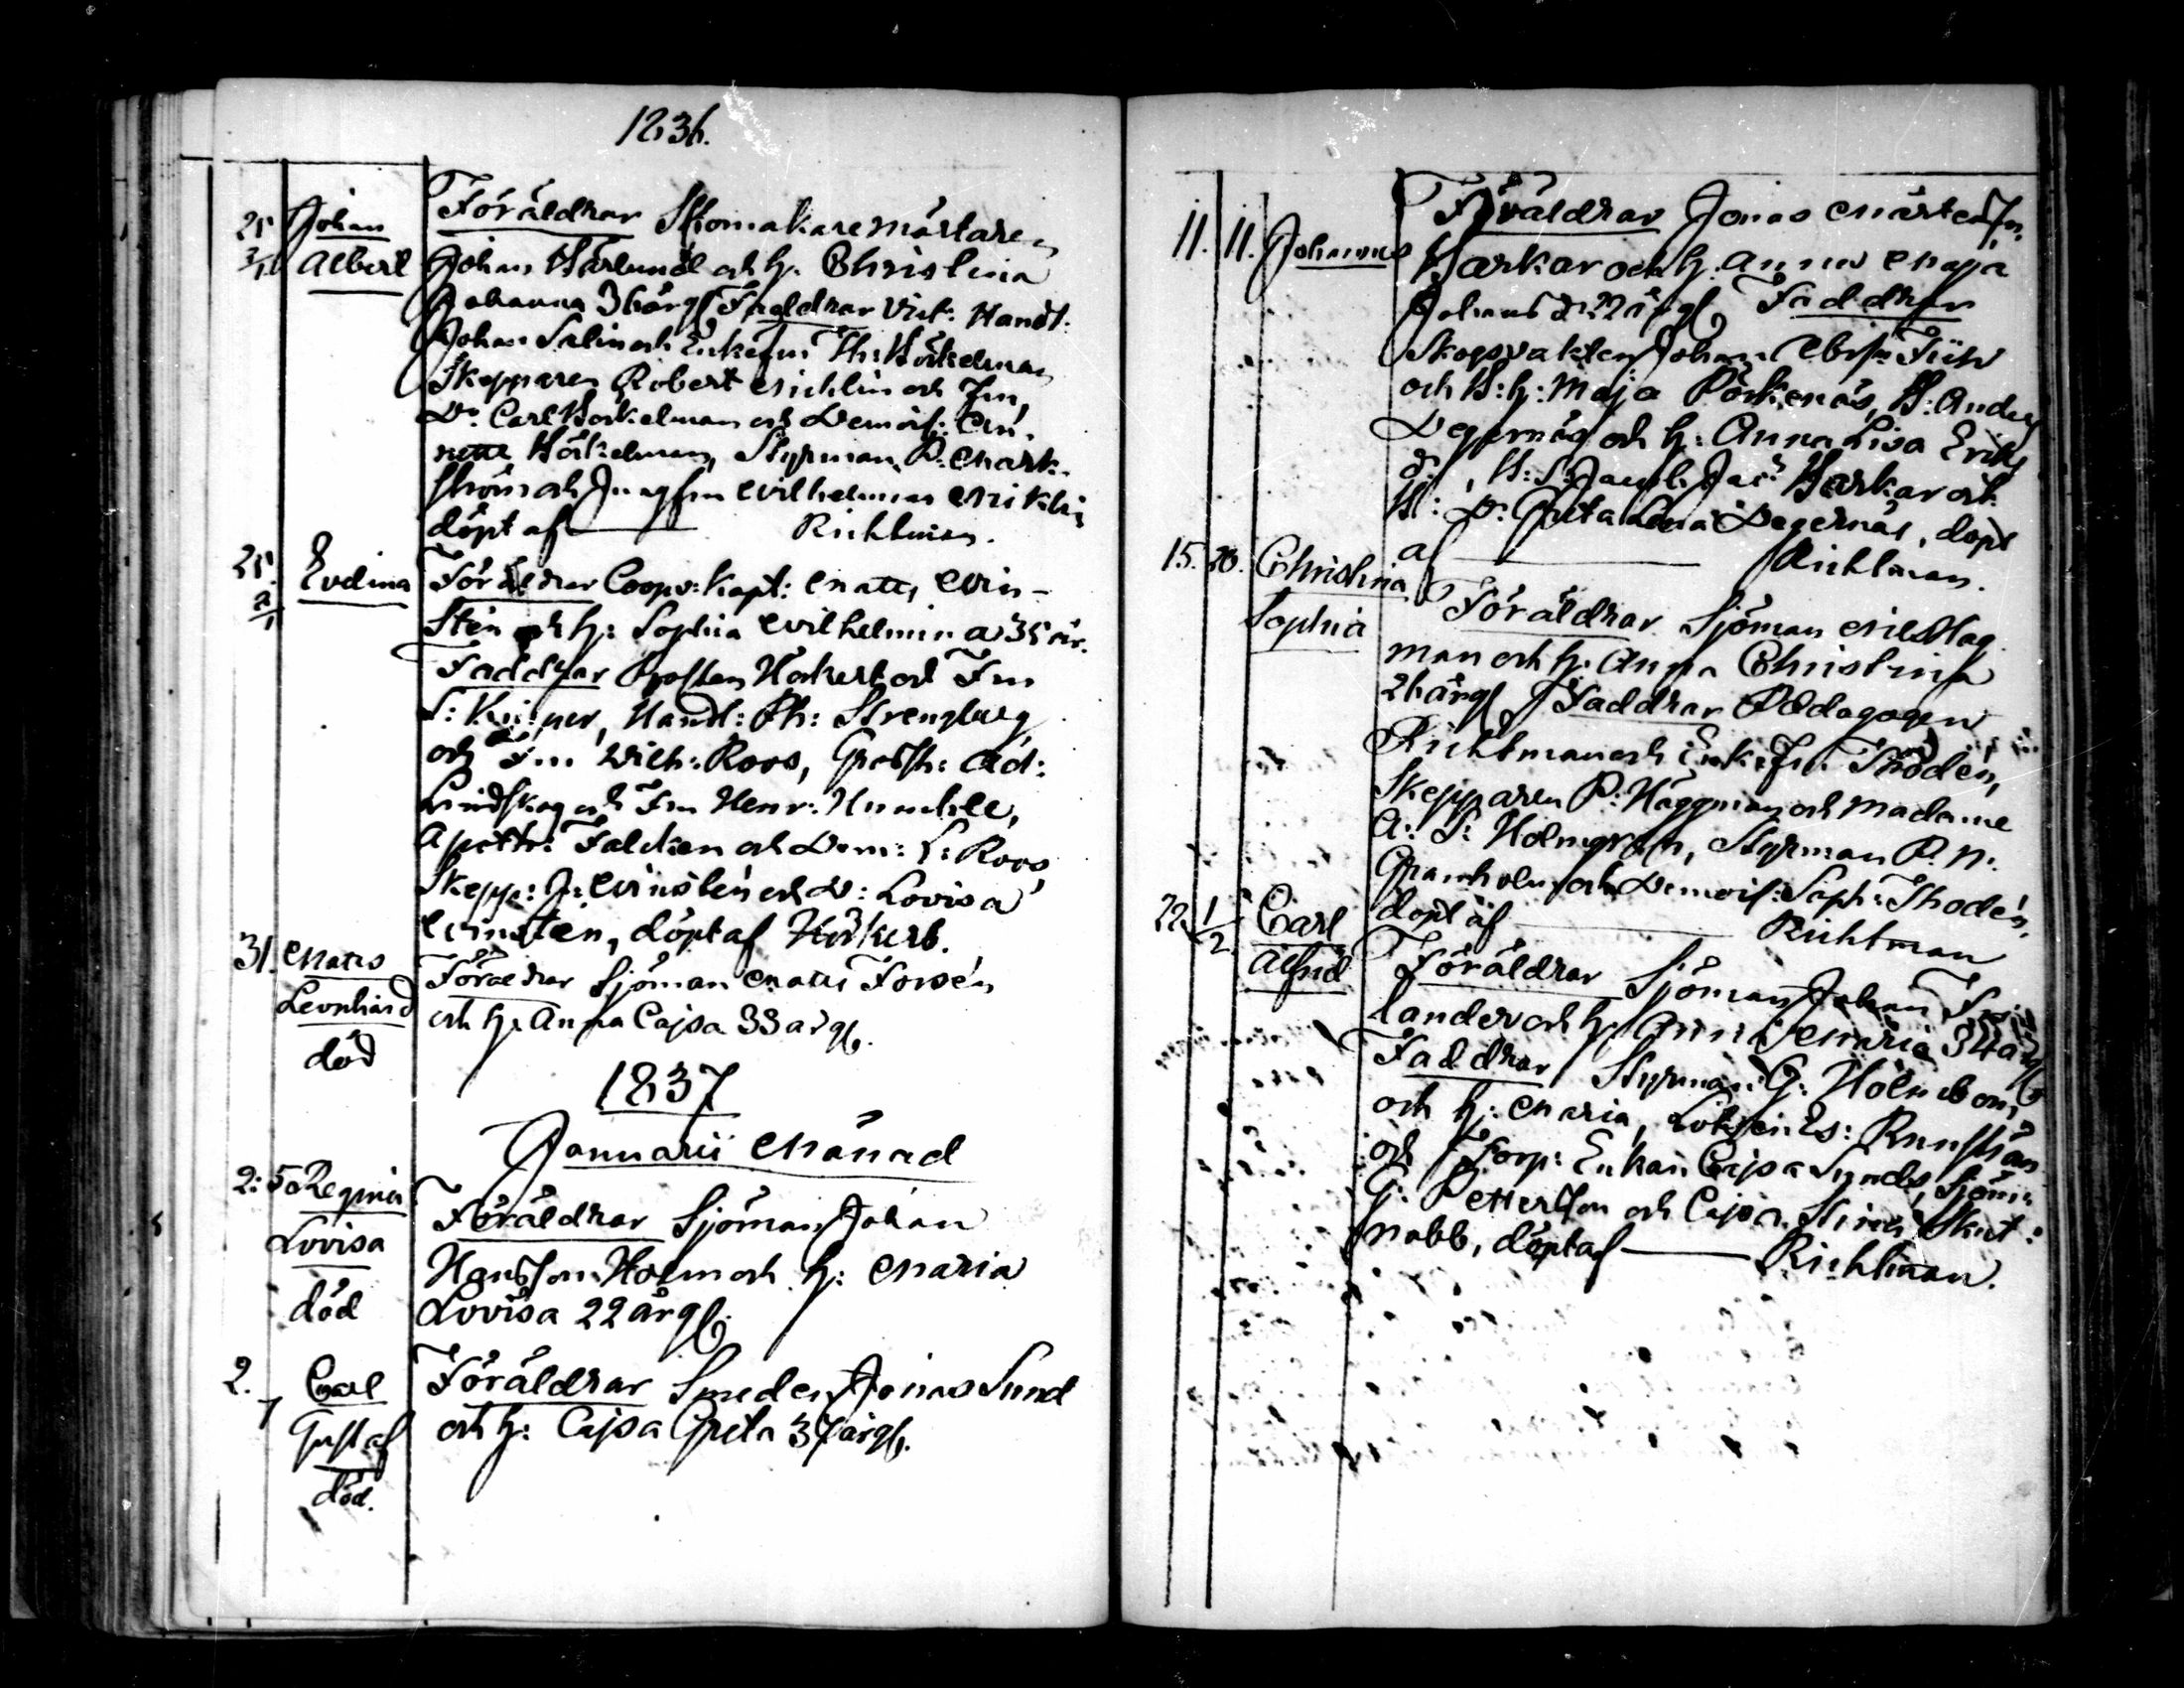 1836.
25 Johan Föräldrar Skomakaremästaren
3/1 Albert Johan Härlund och h. Christina
Johanna 36 årg. Faddrar Vict: Handl:
Johan Salin och Enkefru Th: Böckelman
Skepparen Robert Michlin och Fru,
Dn Carl Bockelman och Demois: An-
nette Böckelman, Styrman P. Mark-
ström och Jungfru Wilhelmina Miklin
döpt af Richtman.
25. Evelina Föräldrar Coopv: Kapt: Matts Win-
2/1 sten och h: Sophia Wilhelmina 35 år.
Faddrar Prosten Hockert och Fru
S: Handl: Ph: Strengberg
och Fru Wilh: Roos, Ad:
Lindskog och Fru Henr:
Apoth: Falcken och Dem: L: Roos,
Skepp: J: Winsten och D: Lovisa
Winsten, döpt af Höckert.
31. Matts Föräldrar Sjöman Matts Forsén
Leonhard och h: Anna Cajsa 33 årg.
död
1837
Januarii Månad
2: 5 Regina Föräldrar Sjöman Johan
Lovisa Hansson Holm och h: Maria
död Lovisa 22 årg.
2. Carl Föräldrar Smeden Jonas Sund
Gustaf och h: Cajsa Greta 37 årg.
död.
11. 11. Johannes Föräldrar Jonas Mårtensson
Harkar och h. Anna Maja
Johans dr 22 årg. Faddrar
Skogsvakten Johan
och B:h: Maja Påskenäs, B: Anders
Degernäs och h: Anna Lisa Eriks
d., B: S: Jacob Jacs Harkar och
B: D: Greta Lena Degernäs, döpt
af Richtman.
15. 20. Christina Föräldrar Sjöman Nils Hag
Sophia man och h. Anna Christina
26 årg. Faddrar Pædagogen
Richtman och Enkefru Thodén,
Skepparen P: Häggman och Madame
A: S: Holmgren, Styrman P. N.
Granholm och Demois: Soph: Thodén,
döpt af Richtman
22. 1/2 Carl Föräldrar Sjöman Johan
Alfrid lander och h. Anna Maria 34 årg
Faddrar Styrman G: Holmbom
och h: Maria, Es:
och Torp: Enkan Cajsa Sjöm:
G: Petterson och Cajsa Stina Skut:
nabb, döpt af Richtman.